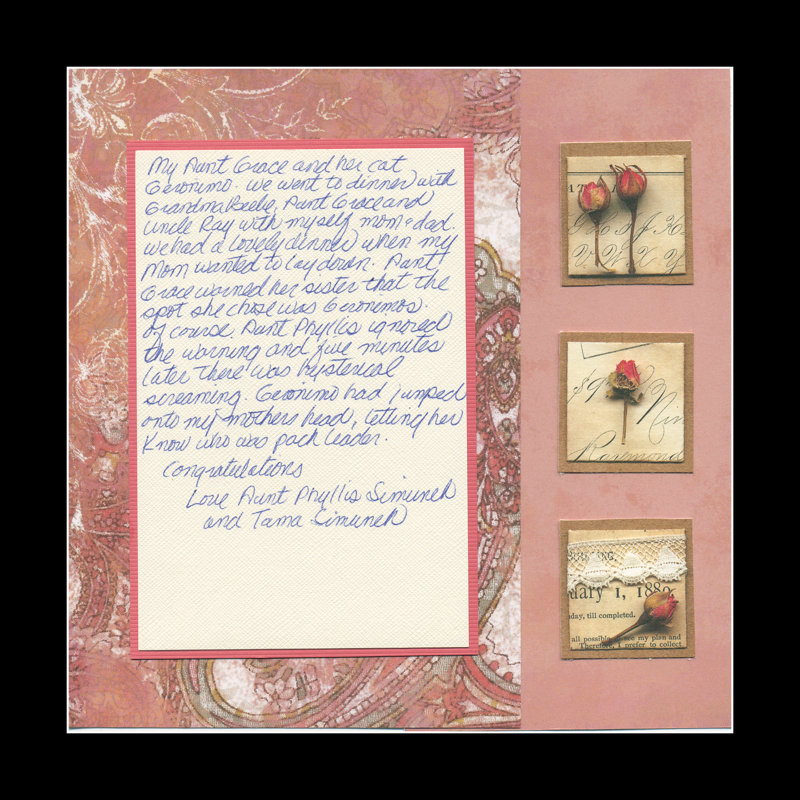 My Aunt Grace and her cat
Geronimo. We went to dinner with
Grandma Beebe, Aunt Grace and
Uncle Ray with myself mom & dad.
We had a lovely dinner when my
Mom wanted to lay down. Aunt
Grace warned her sister that the
spot she chose was Geronimos.
Of course, Aunt Phyllis ignored
the warning and five minutes
later there was hysterical
screaming. Geronimo had jumped
onto my mothers head, letting her
know who was pack leader.
Congratulations
Love Aunt Phyllis Simunek
and Tama Simunek
Raymond
uary 1, 188
day, till completed.
all possible my plan and
Therefore, I prefer to collect